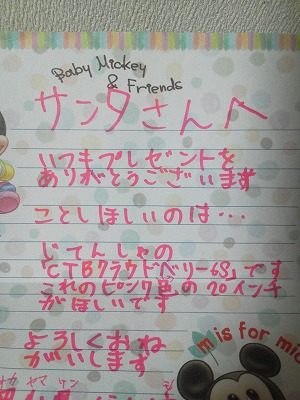 Baby Mickey
& Friends
サンタさんへ
いつもプレゼントを
ありがとうございます
ことしほしいのは…
じてんしゃの
「CTBクラウドベリー6S」です
これのピンク色の20インチ
がほしいです
よろしくおね
がいします
m is for mic